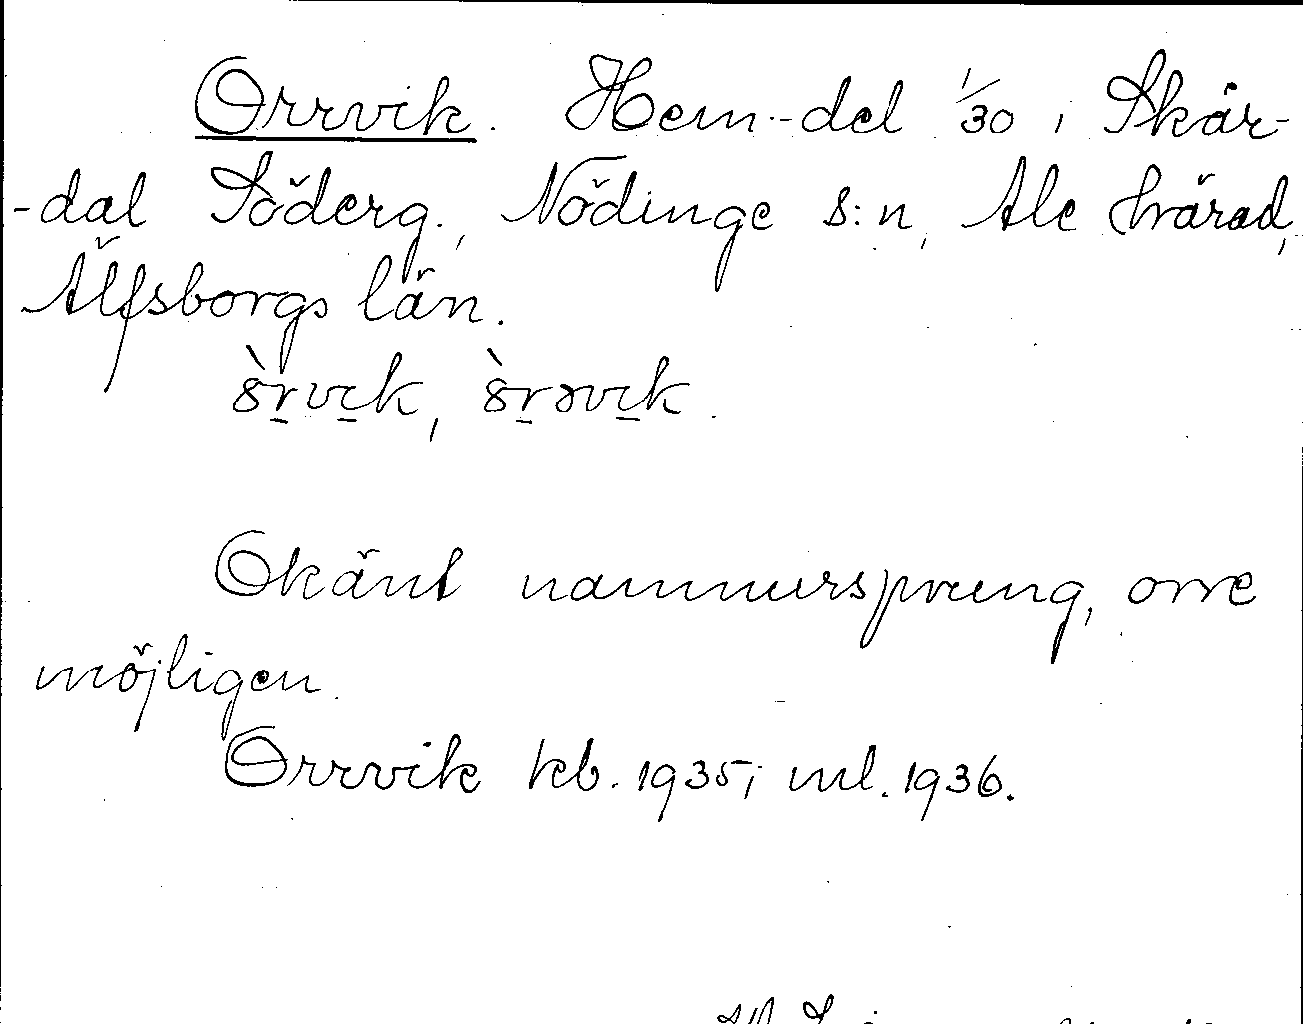 Orrvik. Hem.-del 1/30, Skär-
-dal Söderg., Nödinge s:n, Ale härad,
Älfsborgs län.
Okänt namnursprung, orre
möjligen.
Orrvik kb. 1935; ml. 1936.